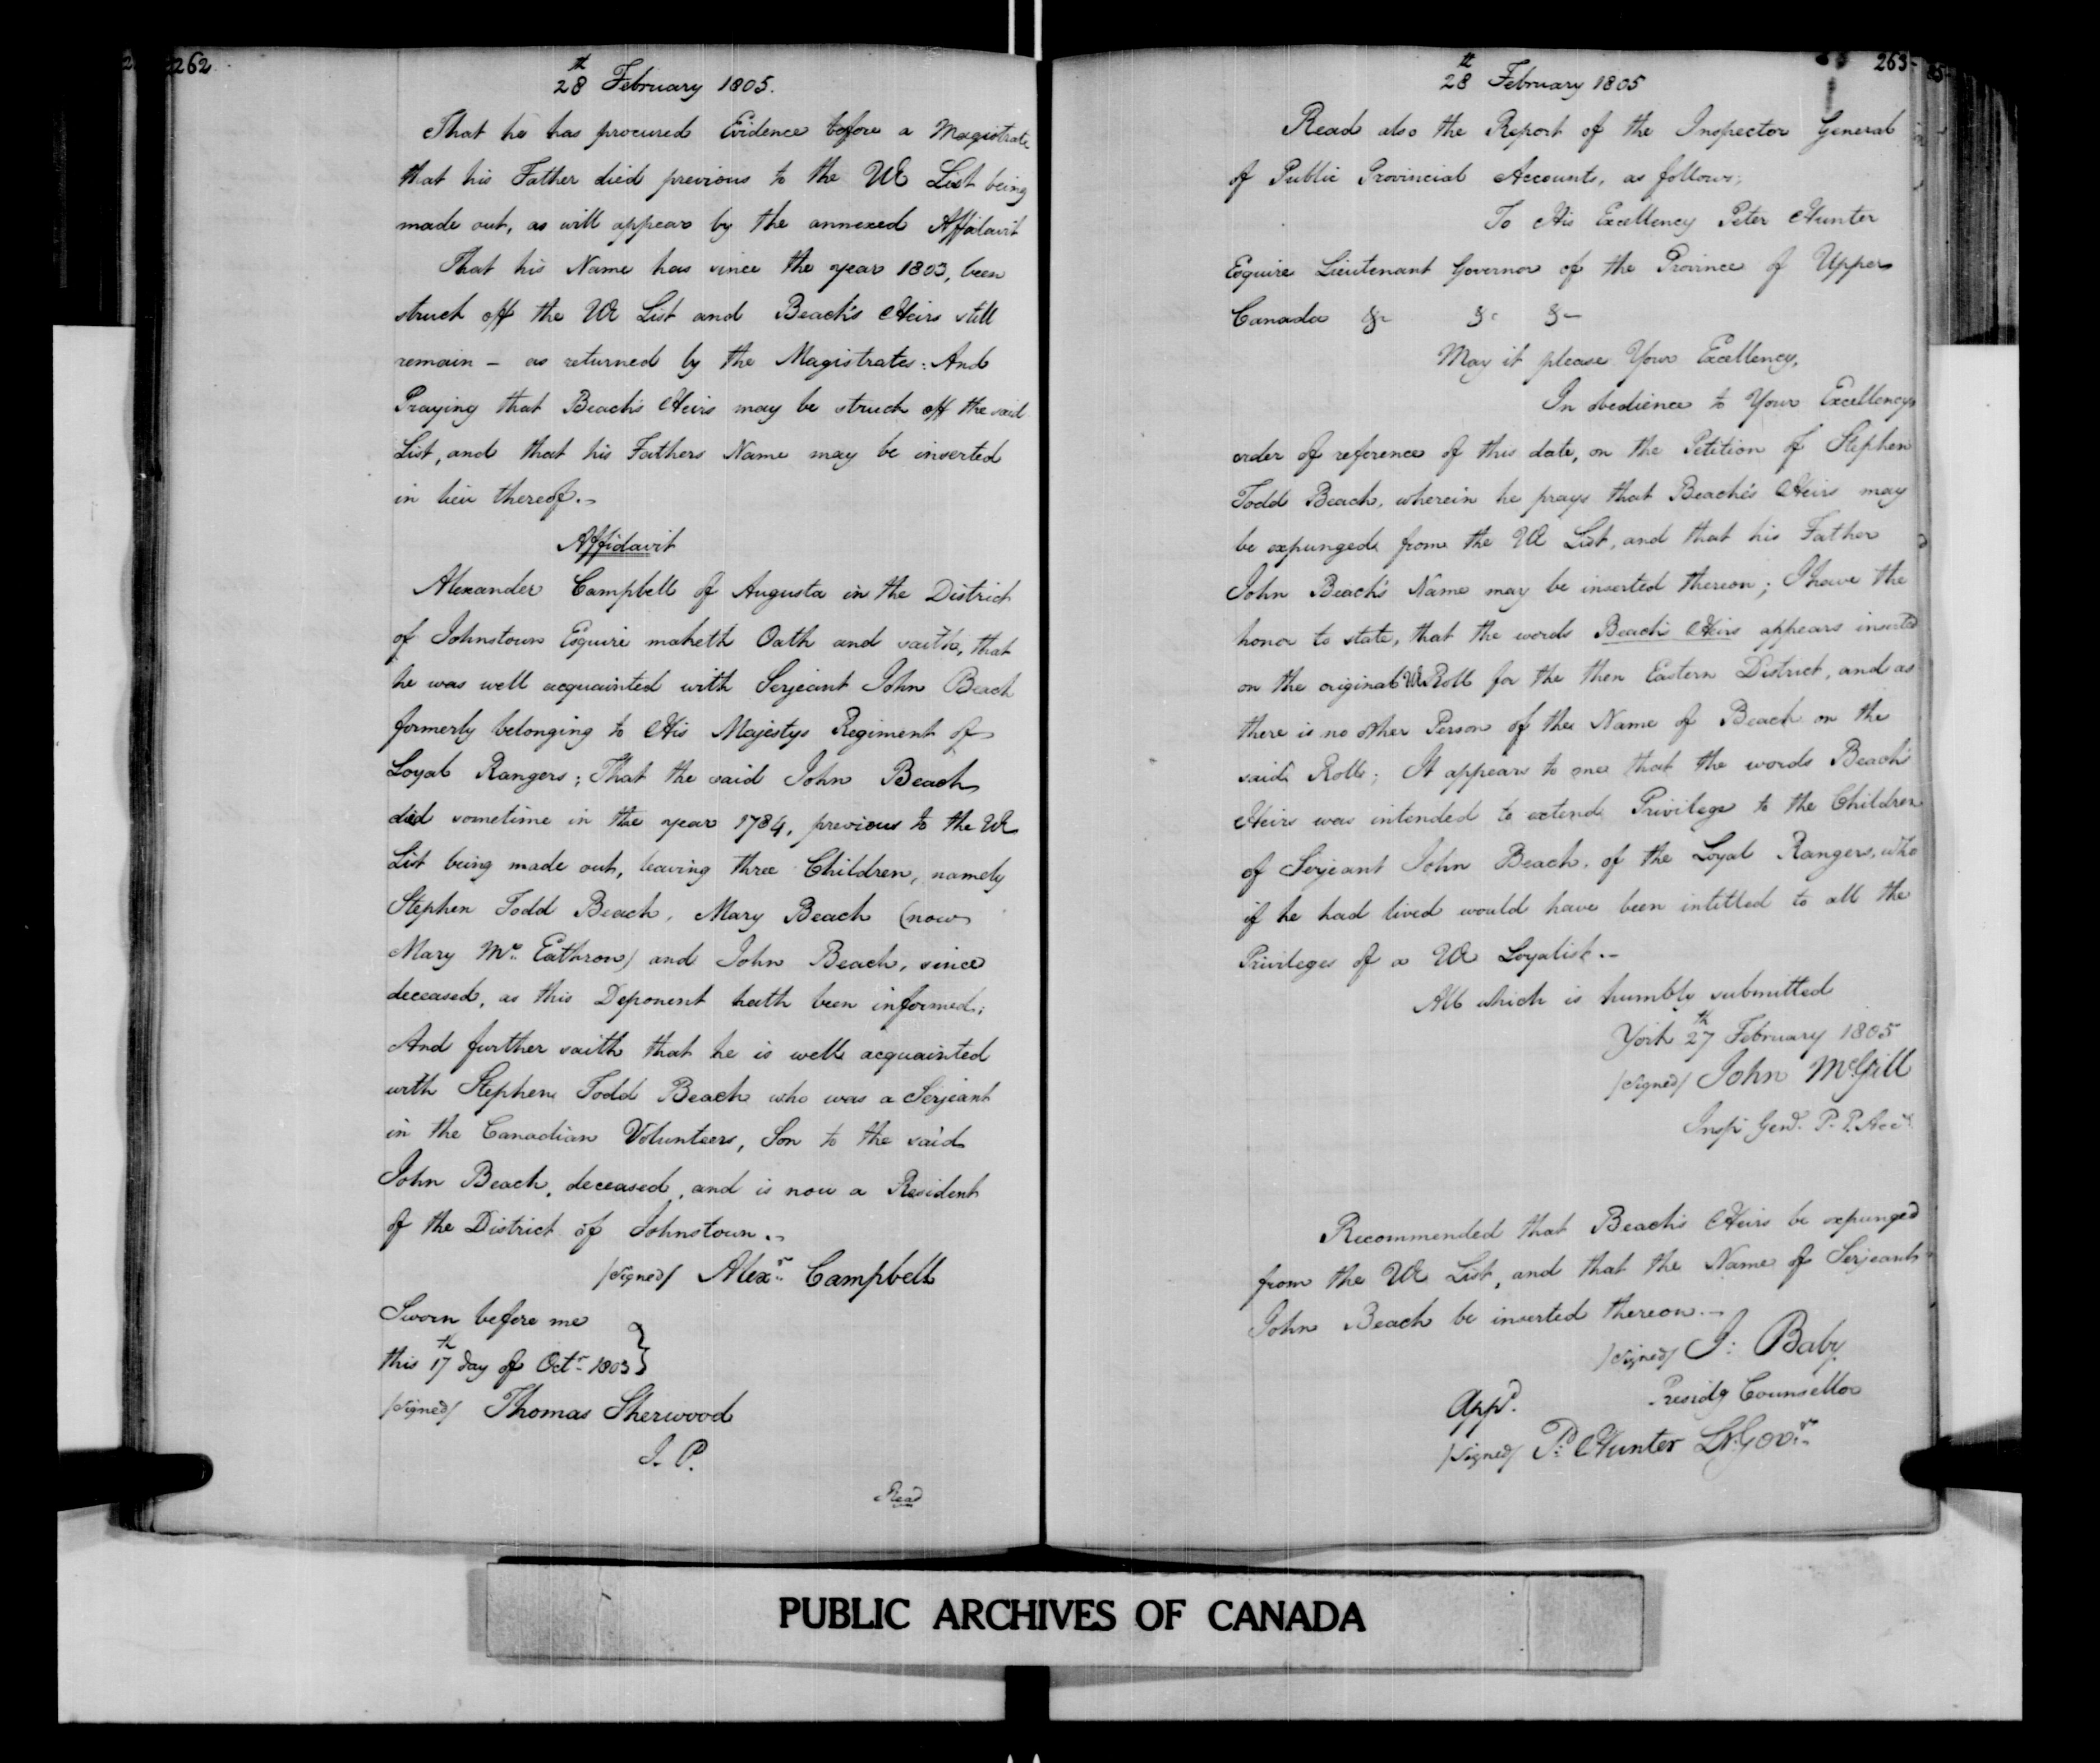 262
28th February 1805.
That he has procured Evidence before a Magistrate
that his Father died previous to the UE List being
made out, as will appear by the annexed Affidavit
That his Name has since the year 1803, been
struck off the UE List and Beach's Heirs still
remain – as returned by the Magistrates: And
Praying that Beach's Heirs may be struck off the said
List, and that his Fathers Name may be inserted
in lieu thereof.–
Affidavit
Alexander Campbell of Augusta in the District
of Johnstown Esquire maketh Oath and saith, that
he was well acquainted with Serjeant John Beach
formerly belonging to His Majestys Regiment of
Loyal Rangers; That the said John Beach
died sometime in the year 1784, previous to the UE
List being made out, leaving three Children, namely
Stephen Todd Beach, Mary Beach (now
Mary Mc Eathron) and John Beach, since
deceased, as this Deponent hath been informed;
And further saith that he is well acquainted
with Stephen Todd Beach who was a Serjeant
in the Canadian Volunteers, Son to the said
John Beach, deceased, and is now a Resident
of the District of Johnstown.–
/signed/ Alexr Campbell
Sworn before me
this 17th day of Octr 1803 }
/signed/ Thomas Sherwood
J. P.
Read
263
28th February 1805
Read also the Report of the Inspector General
of Public Provincial Accounts, as follows;
To His Excellency Peter Hunter
Esquire Lieutenant Governor of the Province of Upper
Canada &c &c &c
May it please Your Excellency,
In obedience to Your Excellencys
order of reference of this date, on the Petition of Stephen
Todd Beach, wherein he prays that Beache's Heirs may
be expunged from the UE List, and that his Father
John Beach's Name may be inserted thereon; I have the
honor to state, that the words Beach's Heirs appears inserted
on the original UE Roll for the then Eastern District, and as
there is no other Person of the Name of Beach on the
said Roll; It appears to me that the words Beach's
Heirs was intended to extend Privilege to the Children
of Serjeant John Beach, of the Loyal Rangers, who
if he had lived would have been intitled to all the
Privileges of a UE Loyalist.–
All which is humbly submitted
York 27th February 1805
/signed/ John McGill
Inspr Genl. P. P. Acc
Recommended that Beach's Heirs be expunged
from the UE List, and that the Name of Serjeant
John Beach be inserted thereon.–
/signed/ J: Baby
Presidg Counsellor
Appd.
/signed/ P: Hunter Lt. Govr
PUBLIC ARCHIVES OF CANADA